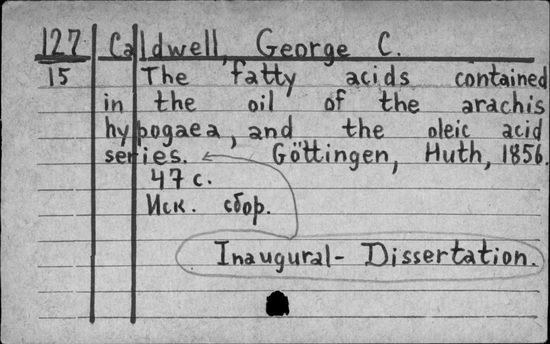 127 Caldwell, George C.
15 The fatty acids contained
in the oil of the arachis
hypogaea, and the oleic acid
series. Göttingen, Huth, 1856.
47 c.
Иск. сбор.
Inaugural- Dissertation.